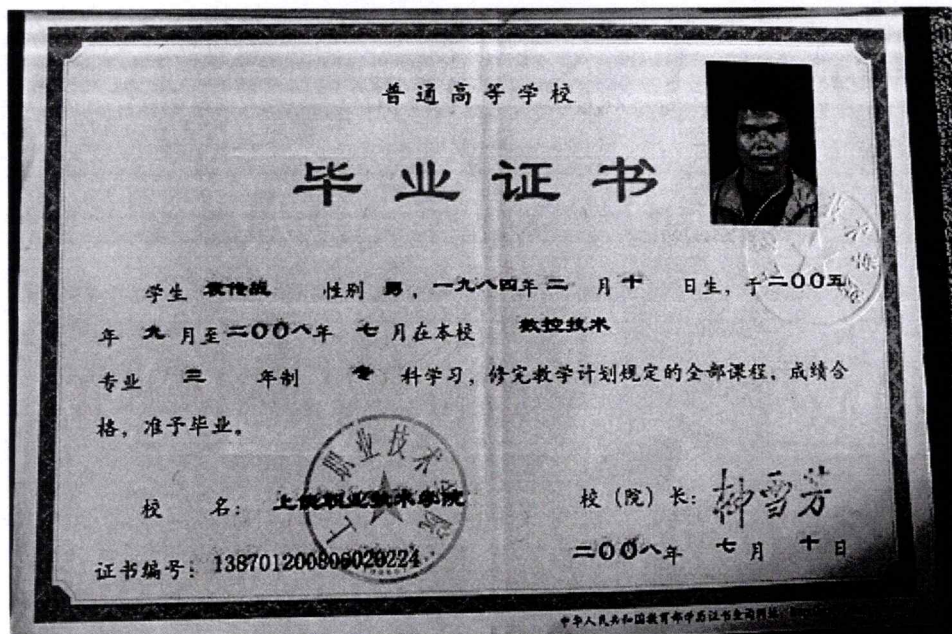 普通高等学校
毕业证书
学生 袁传战 性别 男，一九八四年二月十日生，于二〇〇五
年九月至二〇〇八年七月在本校 数控技术
专业 三 年制 专 科学习，修完教学计划规定的全部课程，成绩合
格，准予毕业。
校 名：上饶职业技术学院
校（院）长：
证书编号：138701200806020224
二〇〇八年七月十日
中华人民共和国教育部学历证书查询网址